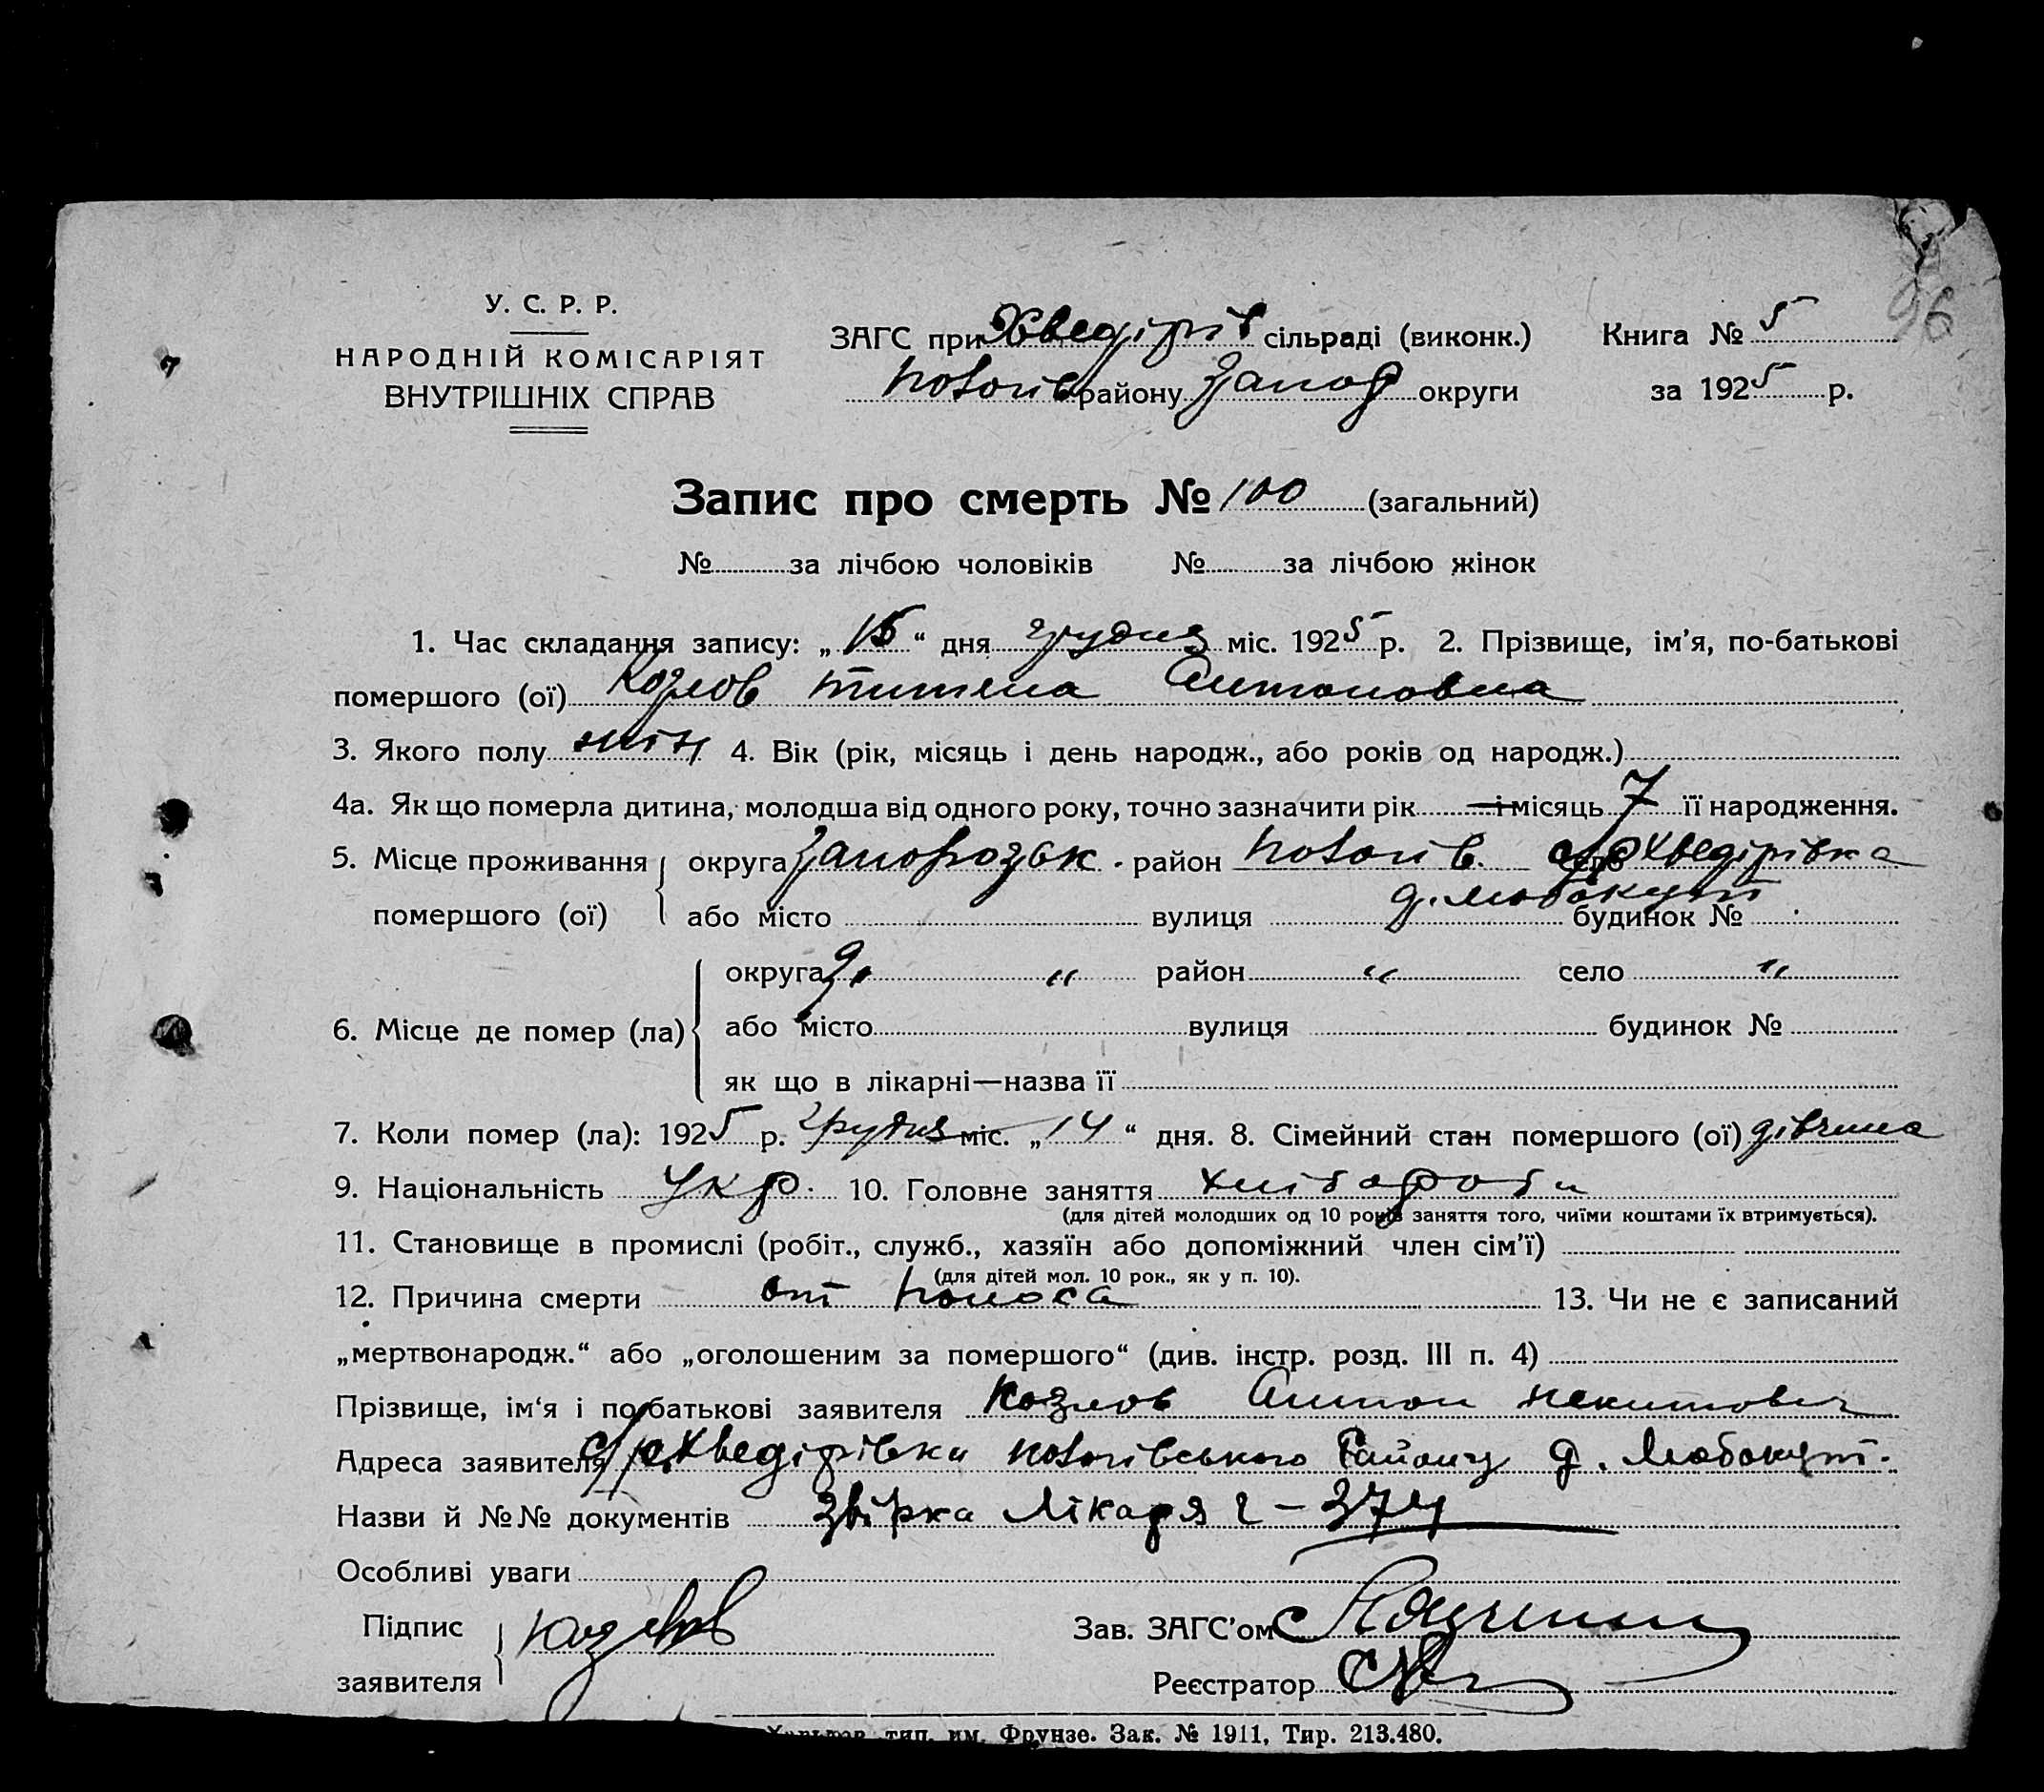 96
У. С. Р. Р.
НАРОДНІЙ КОМІСАРІЯТ
ВНУТРІШНІХ СПРАВ
ЗАГС при Хведірів сільраді (виконк.)
району Запор округи
Книга № 5
за 1925 р.
Запис про смерть № 100 (загальний)
№ за лічбою чоловіків № за лічбою жінок
1. Час складання запису: „15“ дня грудня міс. 1925 р. 2. Прізвище, ім'я, по-батькові
помершого (ої) Козлов Антоновна
3. Якого полу жін 4. Вік (рік, місяць і день народж., або років од народж.)
4а. Як що померла дитина, молодша від одного року, точно зазначити рік і місяць 7 її народження.
5. Місце проживання округа Запорозьк район село Хведірівка
помершого (ої) або місто вулиця д. Любокут будинок №
6. Місце де помер (ла) округа „ район „ село „
або місто вулиця будинок №
як що в лікарні—назва її
7. Коли помер (ла): 1925 р. грудня міс. „14“ дня. 8. Сімейний стан помершого (ої) дівчина
9. Національність Укр. 10. Головне заняття хлібороби
(для дітей молодших од 10 років заняття того, чиїми коштами їх втримується).
11. Становище в промислі (робіт., служб., хазяїн або допоміжний член сім'ї)
(для дітей мол. 10 рок., як у п. 10).
12. Причина смерти от поноса 13. Чи не є записаний
„мертвонародж.“ або „оголошеним за помершого“ (див. інстр. розд. III п. 4)
Прізвище, ім'я і по батькові заявителя Козлов Антон Некитович
Адреса заявителя Хведірівки Району д. Любокут.
Назви й №№ документів Лікаря 374
Особливі уваги
Підпис заявителя Козлов
Зав. ЗАГС'ом
Реєстратор
Харьков, тип. им. Фрунзе. Зак. № 1911, Тир. 213.480.